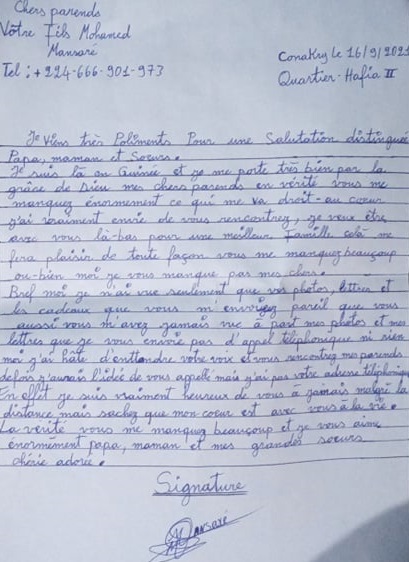 Chers parends
Vôtre Fils Mohamed
Mansaré
Tel : +224-666-901-973
Conakry le 16/9/2021
Quartier-Hafia II
Je Viens très Poliments Pour une Salutation distinguée
Papa, maman et Soeurs.
Je suis là en Guinée et je me porte très bien par la
grâce de Dieu mes chers parends en vérité vous me
manquez énormement ce qui me va droit-au coeur
j'ai vraiment envie de vous rencontrez, je veux être
avec vous là-bas pour une meilleur Famille celà me
fera plaisir de toute façon vous me manquez beaucoup
ou-bien moi je vous manque pas mes chers.
Bref moi je n'ai vue seulement que vos photos, lettres et
les cadeaux que vous m'envoyez pareil que vous
aussi vous m'avez jamais vue à part mes photos et mes
lettres que je vous envoie pas d'appel téléphonique ni rien
moi j'ai hâte d'enttendre vôtre voix et vous rencontrez mes parends
defois j'aurais l'idée de vous appellé mais j'ai pas vôtre adresse téléphonique
En effet je suis vraiment heureux de vous à jamais malgré la
distance mais sachez que mon coeur est avec vous à la vie.
La verité vous me manquez beaucoup et je vous aime
enormément papa, maman et mes grandes soeurs
chérie adorée.
Signature
Mansaré